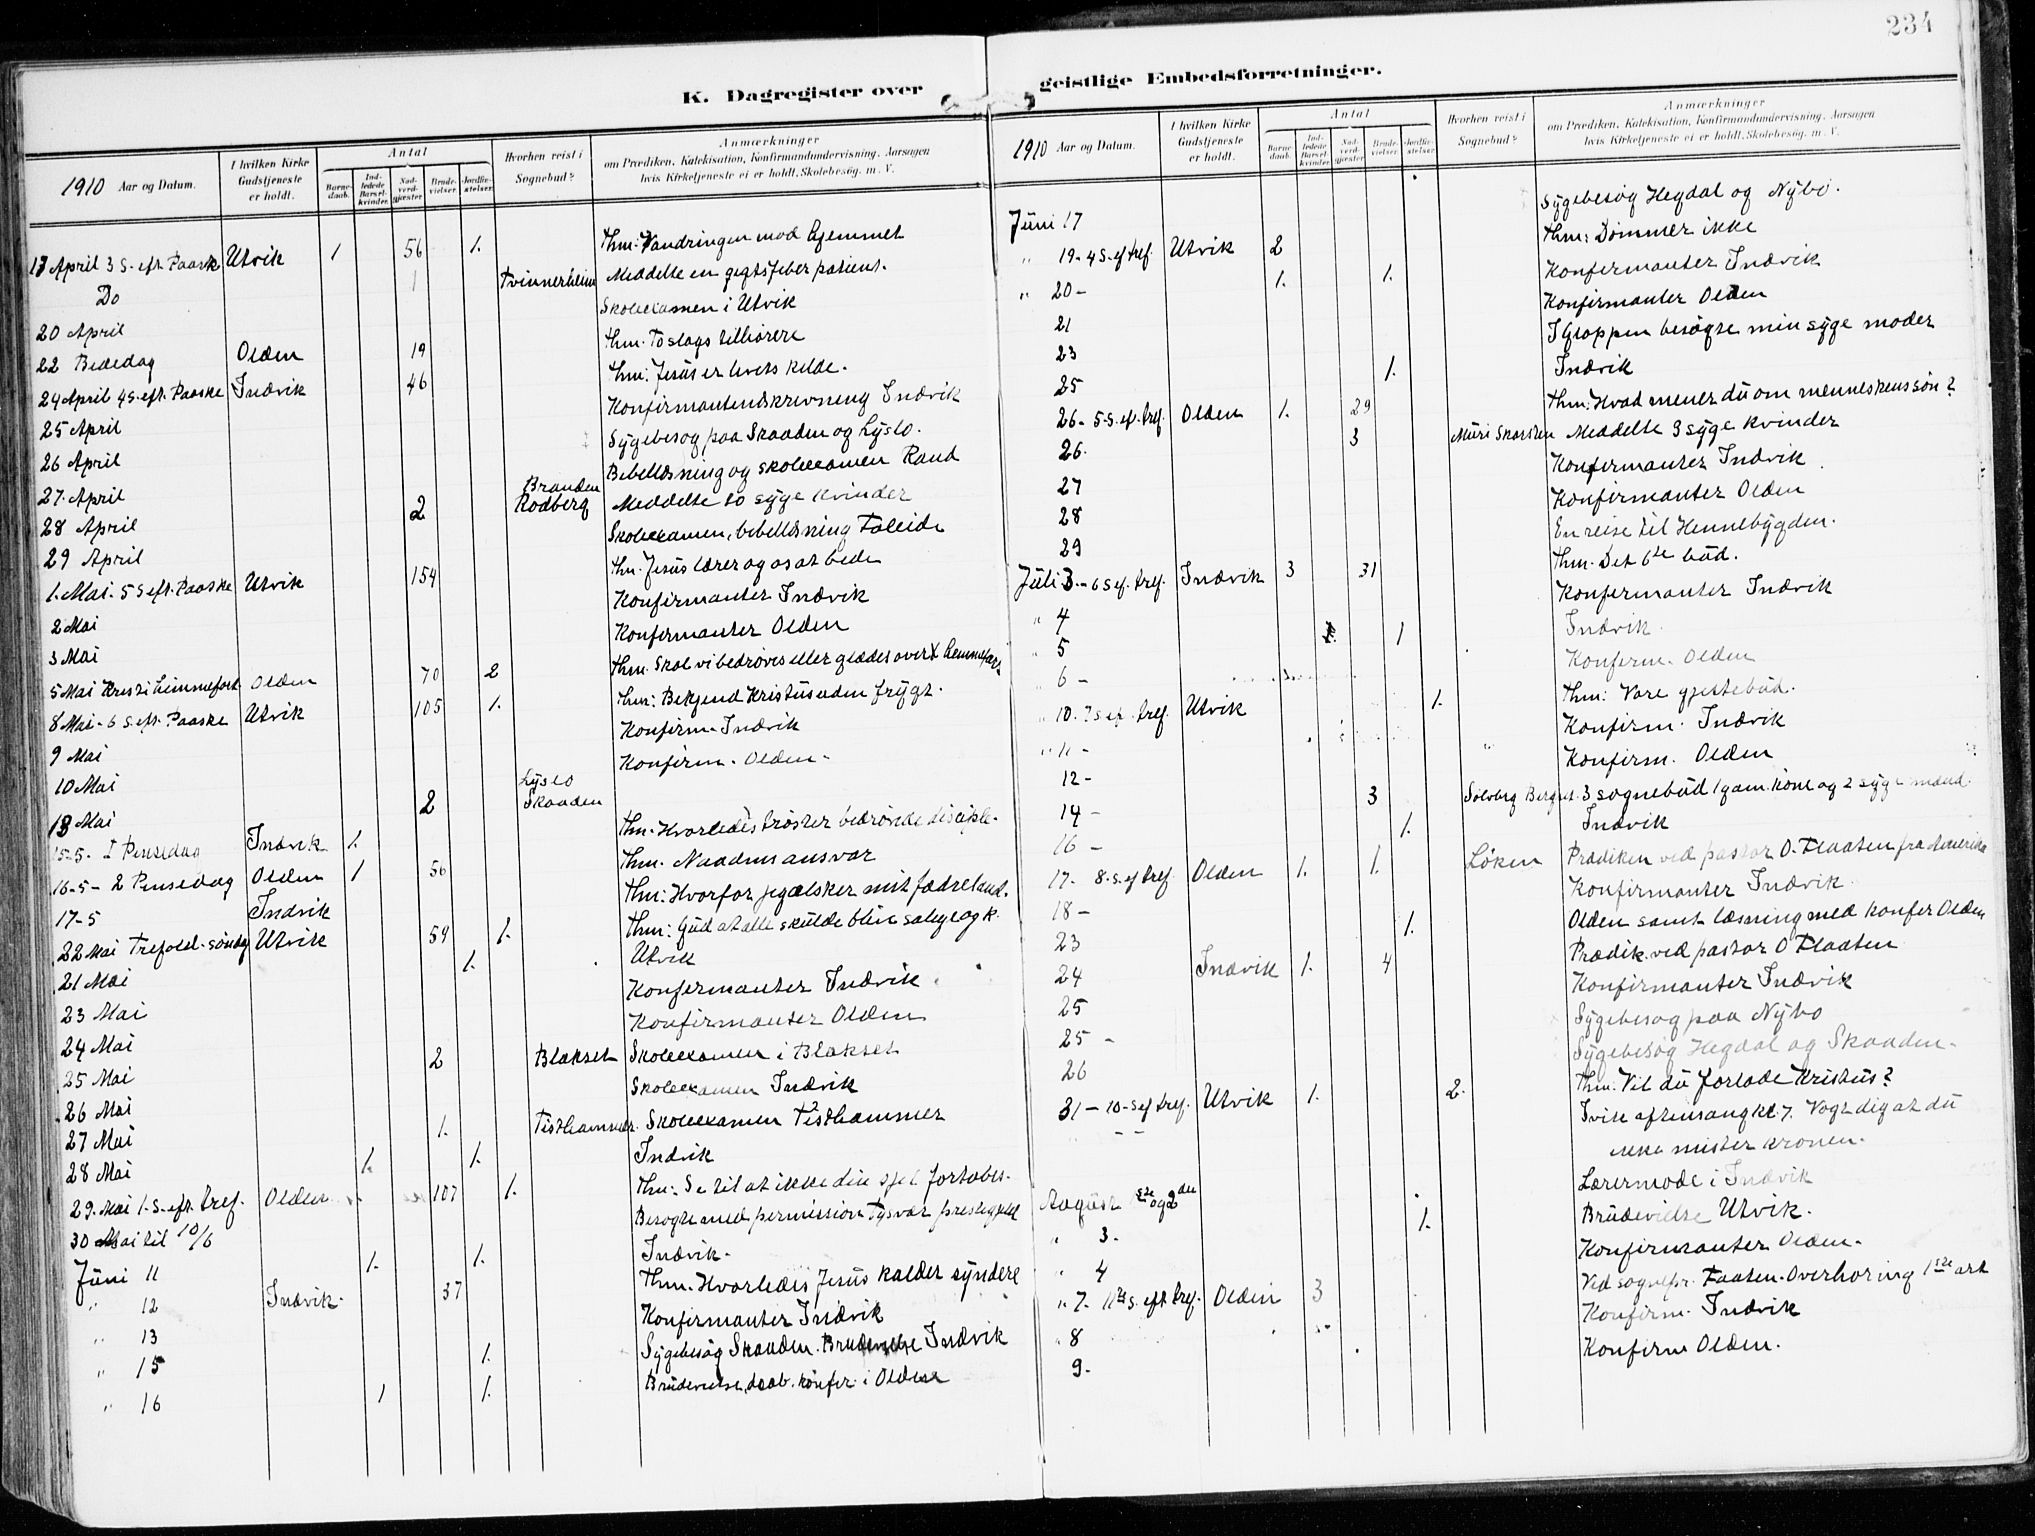 234
K. Dagregister over geistlige Embedsforretninger.
1910 Aar og Datum.
I hvilken Kirke Gudstjeneste er holdt.
Antal
Barnedaab.
Indledede Barselkvinder.
Nadverdgjæster
Brudevielser.
Jordfæstelser.
Hvorhen reist i Sognebud?
Anmærkninger
om Prædiken, Katekisation, Konfirmandundervisning, Aarsagen
hvis Kirketjeneste ei er holdt, Skolebesøg. m. V.
17 April 3 S. eft. Paaske Utvik 1 56 1. Thm: Vandringen mod hjemmet
Do 1 Tvinnereim Meddelte en gigtsfeber patient.
20 April Skoleexamen i Utvik
22 Bededag Olden 19 Thm. To slags tilhørere
24 April 4 S. eft. Paaske Indvik 46 Thm: Jesus er livets kilde.
25 April Konfirmantindskrivning Indvik
26 April Sygebesøg paa Skaaden og Lyslo.
27. April Bibellæsning og skoleexamen Rand
28 April 2 Branden Rodberg Meddelte to syge kvinder
29 April Skoleexamen, bibellæsning Faleide
1. Mai. 5 S eft. Paaske Utvik 154 Thm. Jesus lærer og os at bede
2 Mai Konfirmanter Indvik
3 Mai Konfirmanter Olden
5 Mai Kristi himmelfart Olden 70 2 Thm. Skal vi bedrøves eller glædes over X himmelfart
8 Mai - 6 S. eft. Paaske Utvik 105 1. Thm: Bekjend Kristus uden frygt.
9 Mai Konfirm. Indvik
10 Mai Konfirm. Olden.
13 Mai 2 Lyslo Skaaden
15-5. I Pinsedag Indvik 1. Thm. Hvorledes trøster bedrøvede disciple.
16-5 - 2 Pinsedag Olden 1 56 Thm. Naadens ansvar
17-5 Indvik Thm: Hvorfor jeg elsker mit fædreland.
22 Mai Trefold. søndag Utvik 59 1. Thm: Gud at alle skulde blive salige og k.
21 Mai 1. Utvik
23 Mai Konfirmanter Indvik
24 Mai Konfirmanter Olden
25 Mai 2 Blakset Skoleexamen i Blakset
26 Mai Skoleexamen Indvik
27 Mai 1. Tisthammer. Skoleexamen Tisthammer
28 Mai 1. 1. Indvik
29. Mai 1. S. eft. tref. Olden 107 1. Thm: Se til at ikke din sjel fortabes.
30 Mai til 10/6 Besøgte med permission Tysvær prestegjeld
Juni 11 1. 1. Indvik.
" 12 Indvik. 37 Thm. Hvorledes Jesus kalder syndere
" 13 Konfirmanter Indvik
" 15 1. Sygebesøg Skaaden. Brudevielse Indvik
" 16 1 1. Brudevielse, daab. konfir. i Olden
1910 Aar og Datum.
I hvilken Kirke Gudstjeneste er holdt.
Antal
Barnedaab.
Indledede Barselkvinder.
Nadverdgjæster
Brudevielser.
Jordfæstelser.
Hvorhen reist i Sognebud?
Anmærkninger
om Prædiken, Katekisation, Konfirmandundervisning, Aarsagen
hvis Kirketjeneste ei er holdt, Skolebesøg. m. V.
Juni 17 Sygebesøg Hegdal og Nybø.
" 19 - 4 S. ef tref. Utvik 2 Thm: Dømmer ikke
" 20 - 1. 1. Konfirmanter Indvik
21 Konfirmanter Olden
23 I Gloppen besøgte min syge moder
25 1. Indvik
26 - 5 S. ef. tref. Olden 1. 29 Thm: Hvad mener du om menneskens søn?
26. 3 Muri Skarsten Meddelte 3 syge kvinder
27 Konfirmanter Indvik
28 Konfirmanter Olden
29 En reise til Hennebygden.
Juli 3. - 6 S ef. tref. Indvik 3 31 Thm. Det 6te bud.
" 4 Konfirmanter Indvik
" 5 1 Indvik
" 6 - Konfirm. Olden
" 10. 7 S ef. tref. Utvik 1. Thm: Vore gjestebud.
" 11 - Konfirm. Indvik
12 - Konfirm. Olden
14 - 3 Solvberg Berget 3 sognebud 1 gam. kone og 2 syge mænd.
16 - 1. Indvik
17 - 8. S. ef tref. Olden 1. 1. Løken Prædiken ved pastor O. Flaaten fra Amerika
18 - Konfirmanter Indvik
23 1. Olden samt læsning med konfir Olden
24 Indvik 1. 4 Prædik. ved pastor O Flaaten
25 Konfirmanter Indvik
25 - Sygebesøg paa Nybø
26 Sygebesøg Hegdal og Skaaden.
31 - 10 - S ef tref. Utvik 1. 2. Thm: Vil du forlade Kristus?
" - - Ivik aftensang kl. 7. Vogt dig at du
ikke mister kronen.
August 1ste og 2den Lærermøde i Indvik
" 3. 1. Brudevielse Utvik.
" 4 Konfirmanter Olden.
" 7. 11te S. eft tref. Olden 3 Ved sognepr. Taaten. Overhøring 1ste art
" 8 Konfirm. Indvik
9. Konfirm Olden.